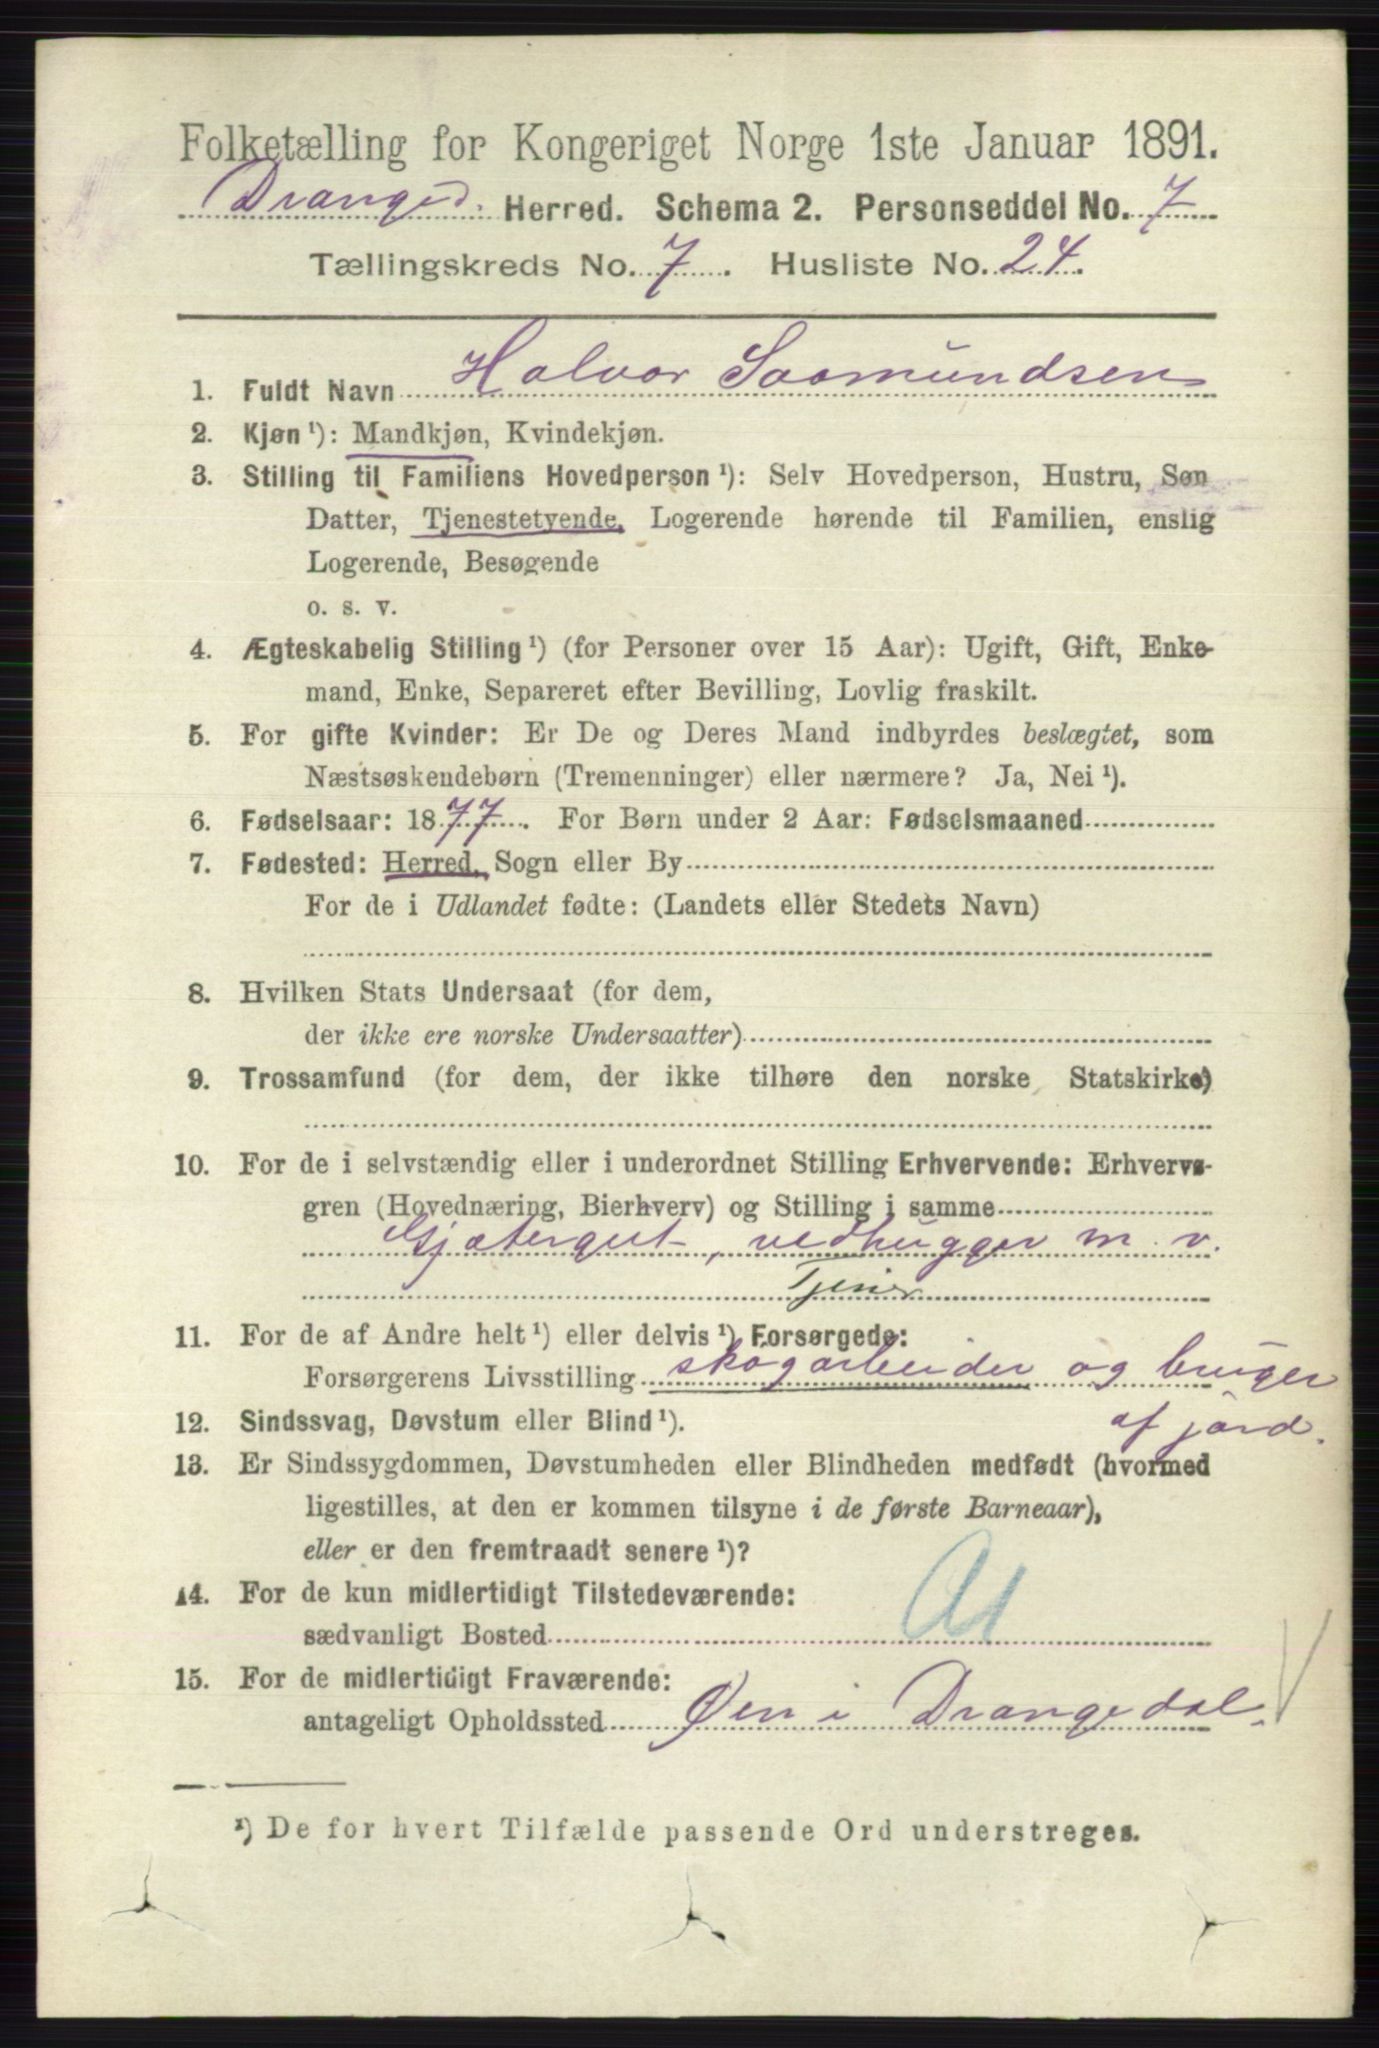 Folketælling for Kongeriget Norge 1ste Januar 1891.
Dranged. Herred. Schema 2. Personseddel No. 7
Tællingskreds No. 7. Husliste No. 24.
1. Fuldt Navn Halvor Saamundsen
2. Kjøn ¹): Mandkjøn, Kvindekjøn.
3. Stilling til Familiens Hovedperson ¹): Selv Hovedperson, Hustru, Søn
Datter, Tjenestetyende, Logerende hørende til Familien, enslig
Logerende, Besøgende
o. s. v.
4. Ægteskabelig Stilling ¹) (for Personer over 15 Aar): Ugift, Gift, Enke-
mand, Enke, Separeret efter Bevilling, Lovlig fraskilt.
5. For gifte Kvinder: Er De og Deres Mand indbyrdes beslægtet, som
Næstsøskendebørn (Tremenninger) eller nærmere? Ja, Nei ¹).
6. Fødselsaar: 1877. For Børn under 2 Aar: Fødselsmaaned
7. Fødested: Herred, Sogn eller By
For de i Udlandet fødte: (Landets eller Stedets Navn)
8. Hvilken Stats Undersaat (for dem,
der ikke ere norske Undersaatter)
9. Trossamfund (for dem, der ikke tilhøre den norske Statskirke)
10. For de i selvstændig eller i underordnet Stilling Erhvervende: Erhvervs-
gren (Hovednæring, Bierhverv) og Stilling i samme
Gjætergut, vedhugger m. v.
Tjener
11. For de af Andre helt ¹) eller delvis ¹) Forsørgede:
Forsørgerens Livsstilling skogarbeider og bruger
af jord.
12. Sindssvag, Døvstum eller Blind ¹).
13. Er Sindssygdommen, Døvstumheden eller Blindheden medfødt (hvormed
ligestilles, at den er kommen tilsyne i de første Barneaar),
eller er den fremtraadt senere ¹)?
14. For de kun midlertidigt Tilstedeværende:
sædvanligt Bosted
15. For de midlertidigt Fraværende:
antageligt Opholdssted Øen i Drangedal.
¹) De for hvert Tilfælde passende Ord understreges.